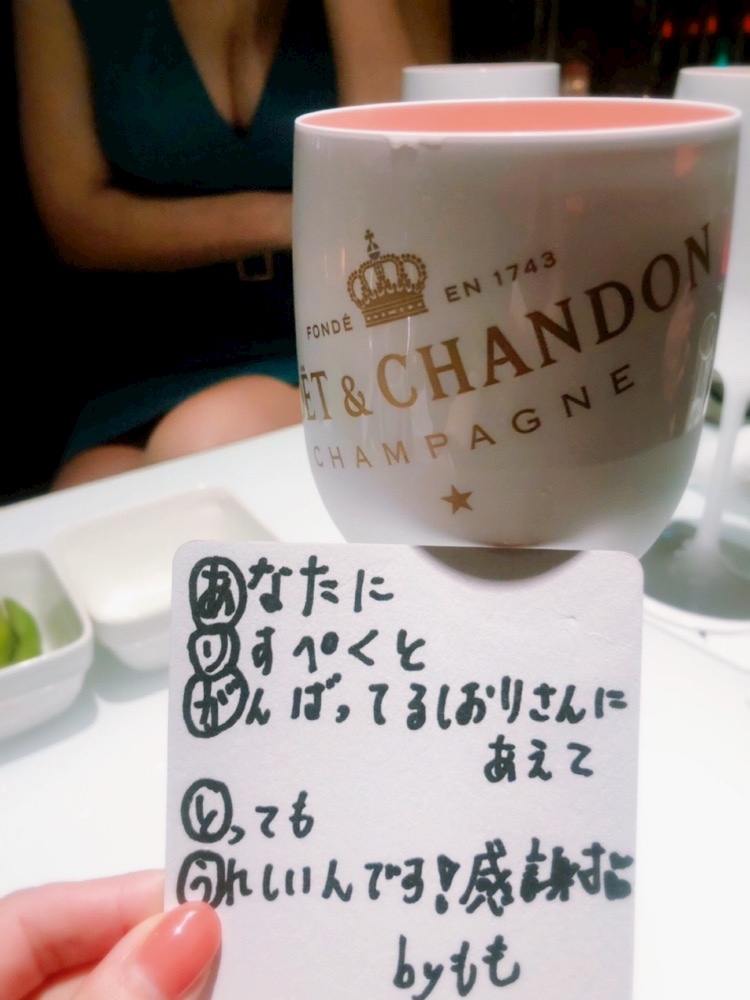 FONDÉ EN 1743
ËT & CHANDON
CHAMPAGNE
あなたに
りすぺくと
がんばってるしおりさんに
あえて
とっても
うれしいんです!感謝
byもも